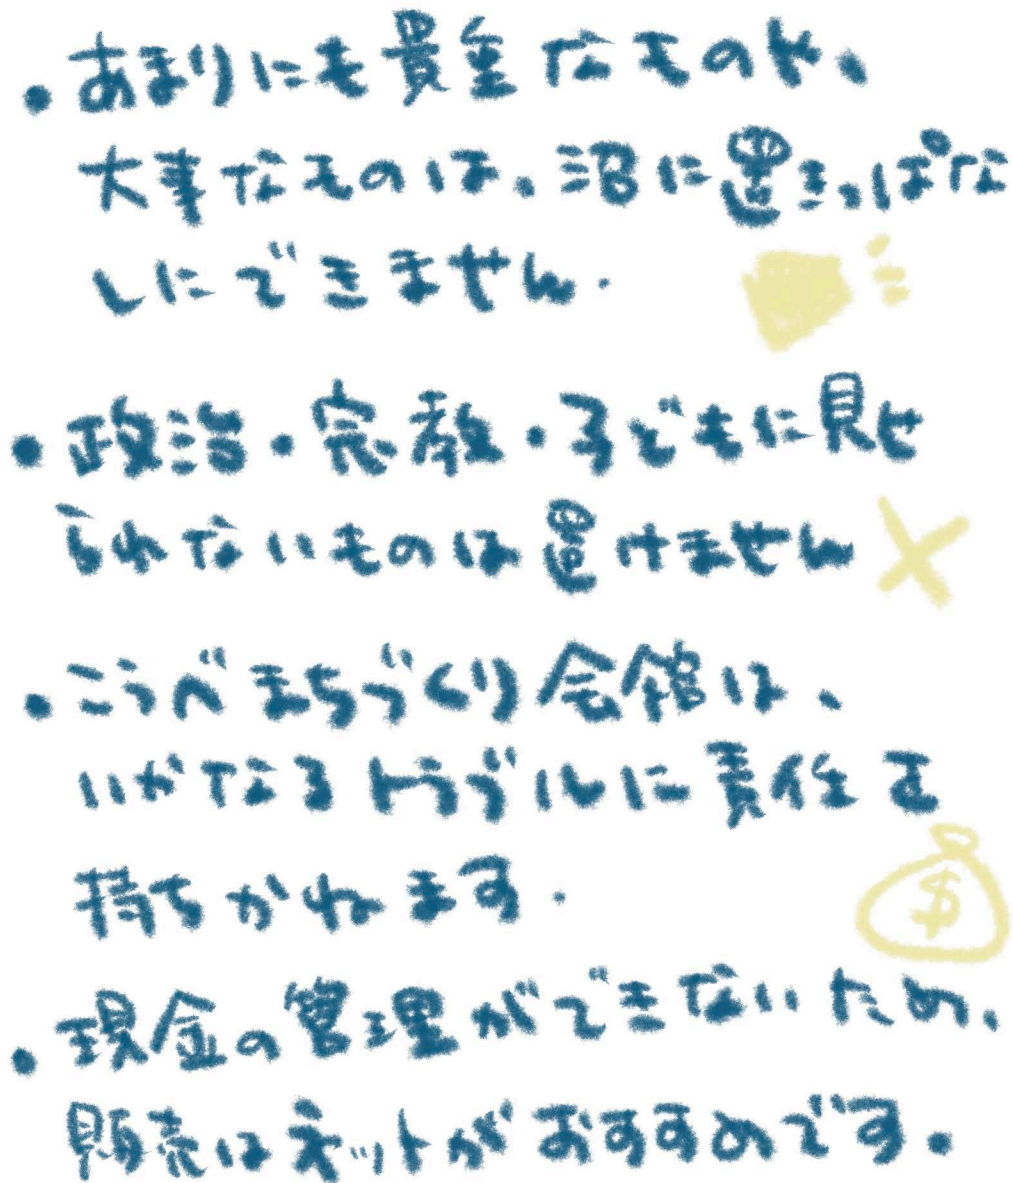 ・あまりにも貴重なものや、
大事なものは、沼に置きっぱな
しにできません.
・政治・宗教・子どもに見せ
られないものは置けません
・こうべまちづくり会館は、
いかなるトラブルに責任を
持ちかねます.
$
・現金の管理ができないため、
販売はネットがおすすめです.